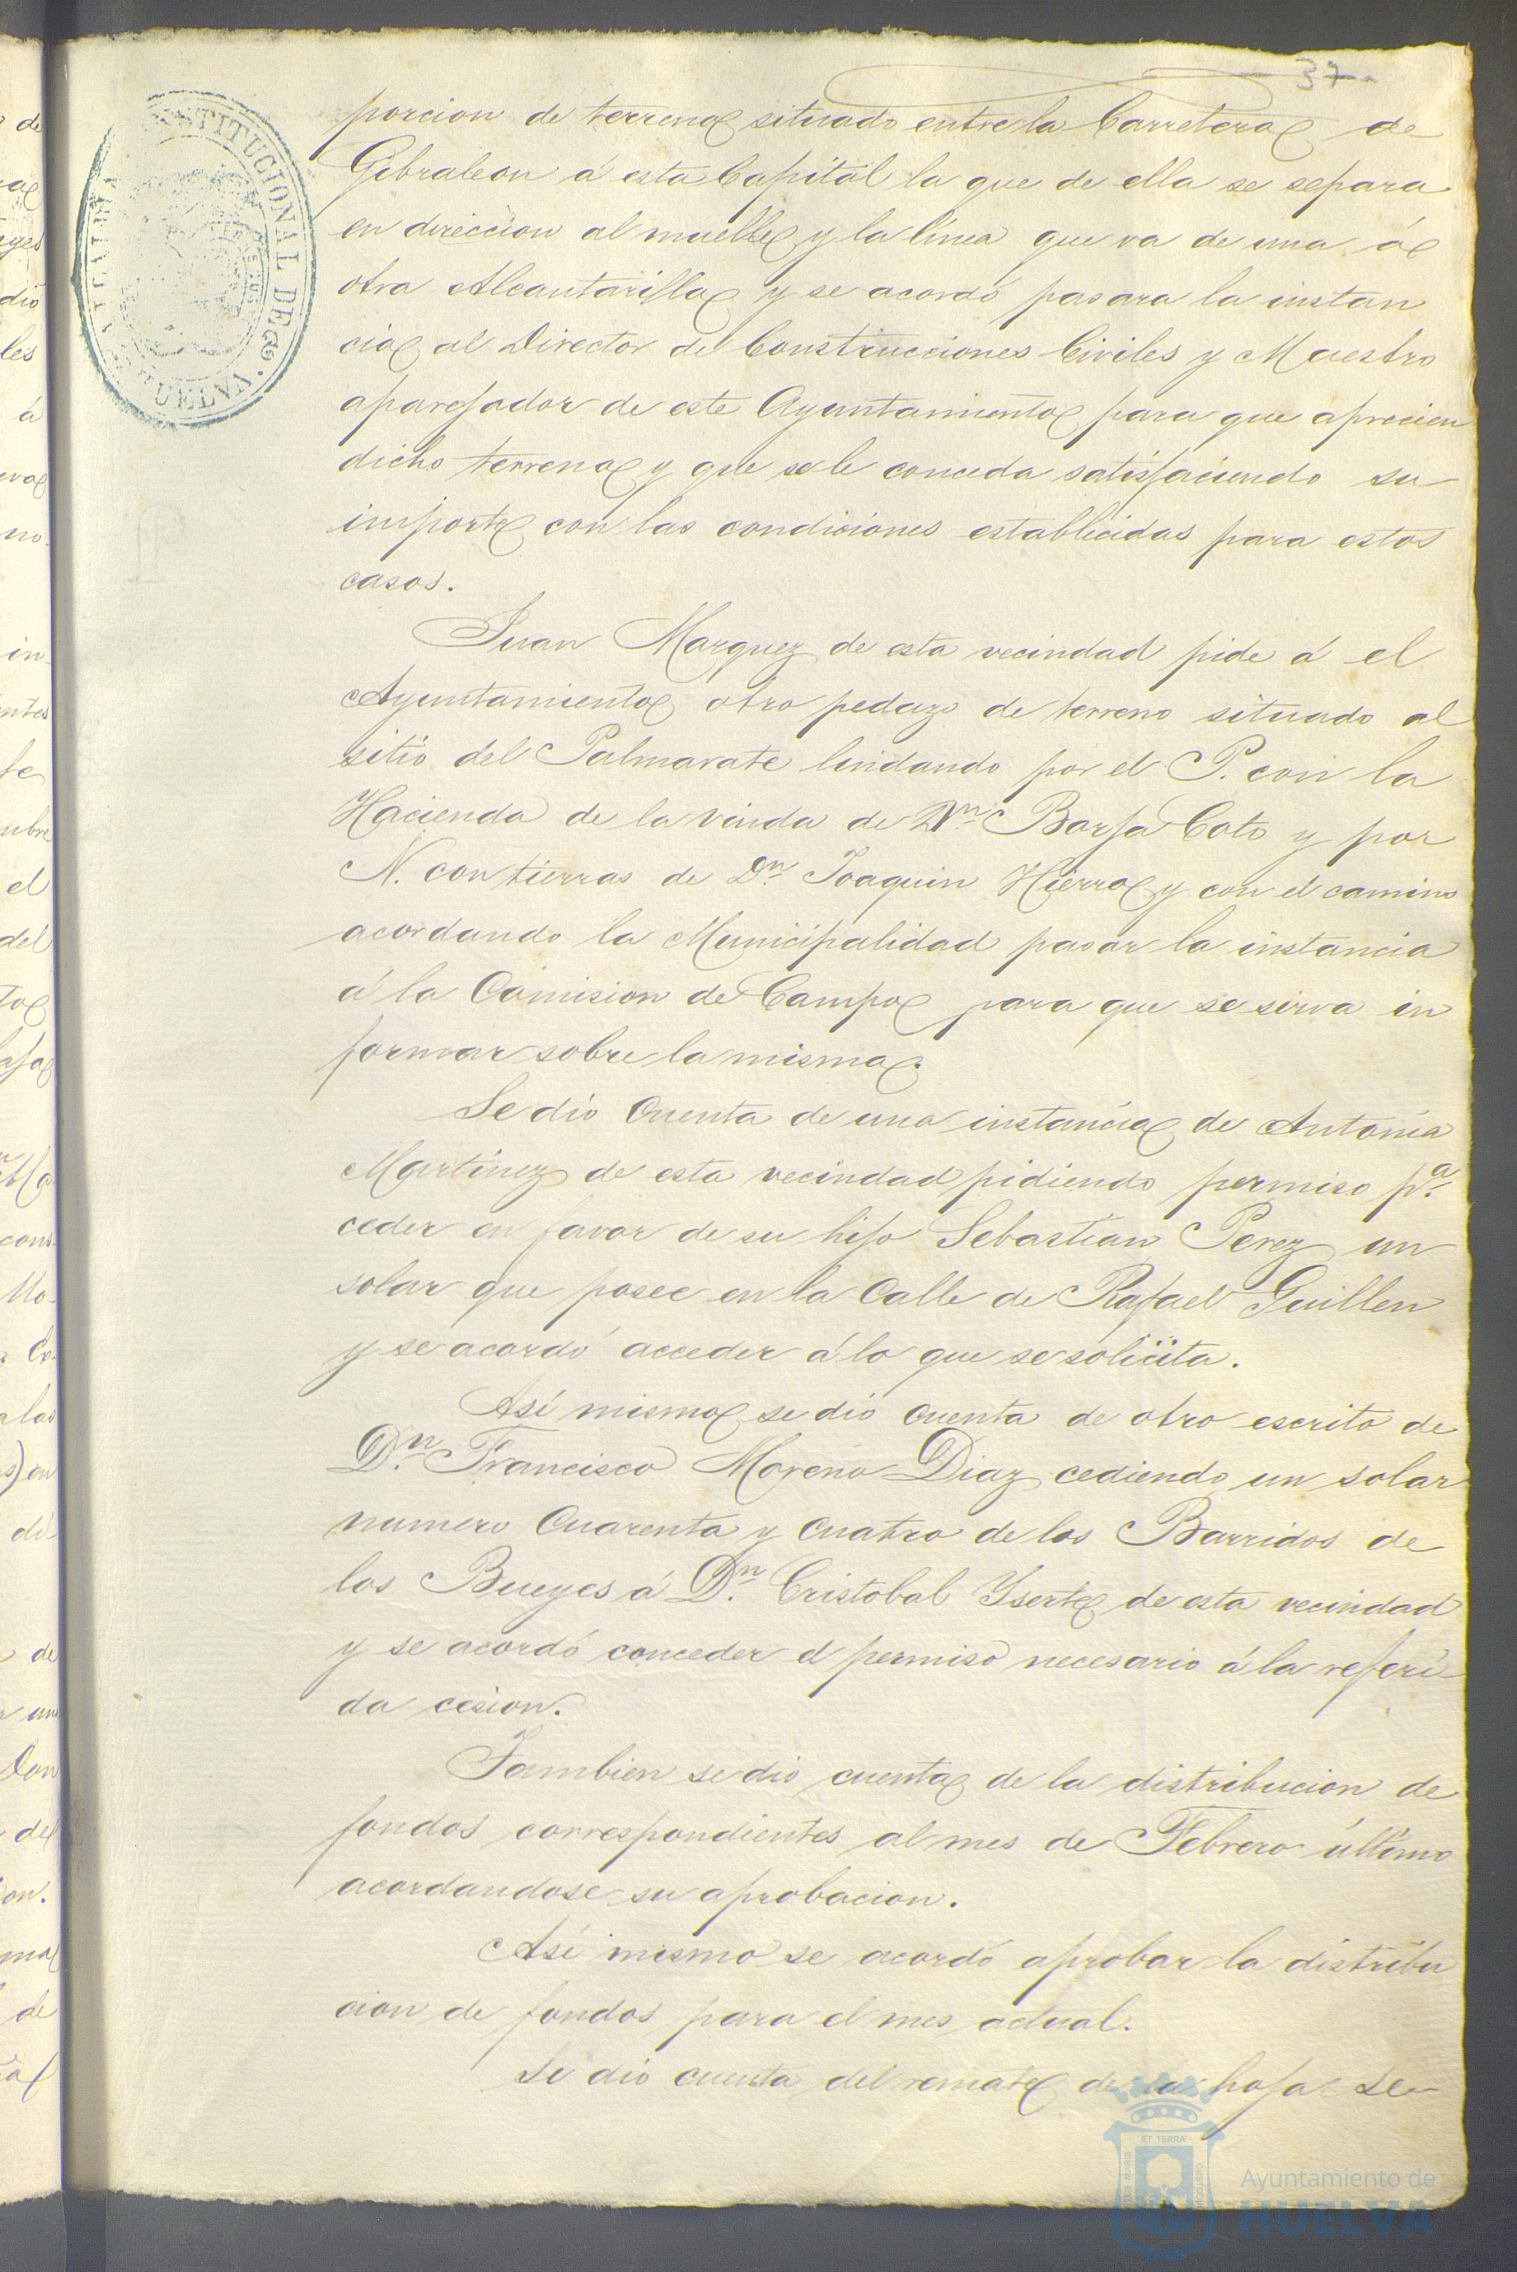 37
porcion de terreno situado entre la Carretera de
Gibraleon á esta Capital la que de ella se separa
en direccion al muelle y la linea que va de una á
otra Alcantarilla y se acordó pasara la instan
cia al Director de Construcciones Civiles y Maestro
aparejador de este Ayuntamiento para que aprecien
dicho terreno y que se le conceda satisfaciendo su
importe con las condiciones establecidas para estos
casos.
Juan Marquez de esta vecindad pide á el
Ayuntamiento otro pedazo de terreno situado al
sitio del Palmarate lindando por el P. con la
Hacienda de la viuda de Dn. Borja Coto y por
N. con tierras de Dn. Joaquin Hierro y con el camino
acordando la Municipalidad pasar la instancia
á la Comision de Campo para que se sirva in
formar sobre la misma.
Se dió Cuenta de una instancia de Antonia
Martinez de esta vecindad pidiendo permiso pa.
ceder en favor de su hijo Sebastian Perez un
solar que posee en la Calle de Rafael Guillen
y se acordó acceder á lo que se solicita.
Así mismo se dió Cuenta de otro escrito de
Dn. Francisco Moreno Diaz cediendo un solar
numero Cuarenta y Cuatro de los Barridos de
los Bueyes á Dn. Cristobal Yserte de esta vecindad
y se acordó conceder el permiso necesario á la referi-
da cesion.
Tambien se dió cuenta de la distribucion de
fondos correspondientes al mes de Febrero último
acordandose su aprobacion.
Así mismo se acordó aprobar la distribu
cion de fondos para el mes actual.
Se dió cuenta del remate de la hoja Se-
CONSTITUCIONAL DE HUELVA.
Ayuntamiento de
HUELVA